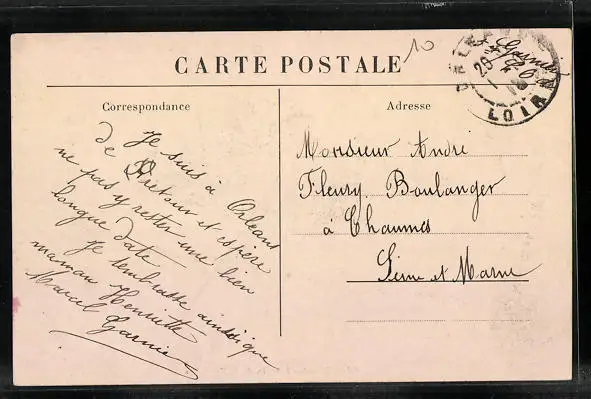 10
CARTE POSTALE
Correspondance
Adresse
ORLEANS
29
LOIRET
Garnier
Je suis à Orléans
de Retour et espère
ne pas y rester une bien
longue date
Je tembrasse ainsi que
maman Henriette
Marcel Garnier
Monsieur André
Fleury Boulanger
à Chaumes
Seine et Marne